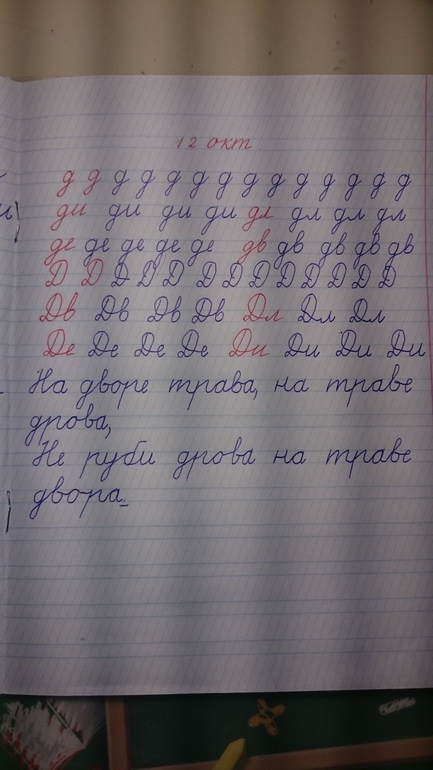 12 окт
д д д д д д д д д д д д д д
ди ди ди ди дл дл дл дл
де де де де де дв дв дв дв дв
Д Д Д Д Д Д Д Д Д Д Д Д Д
Дв Дв Дв Дв Дл Дл Дл
Де Де Де Де Ди Ди Ди Ди
На дворе трава, на траве
дрова,
Не руби дрова на траве
двора.